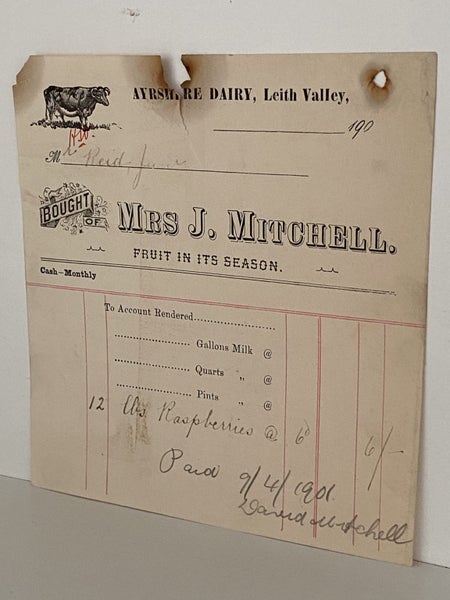 AYRSHIRE DAIRY, Leith Valley,
190
M Reid
BOUGHT OF
MRS J. MITCHELL.
FRUIT IN ITS SEASON.
Cash—Monthly
To Account Rendered
Gallons Milk @
Quarts „ @
Pints „ @
12 lbs Raspberries @ 6d 6/-
Paid 9/4/1901.
David Mitchell